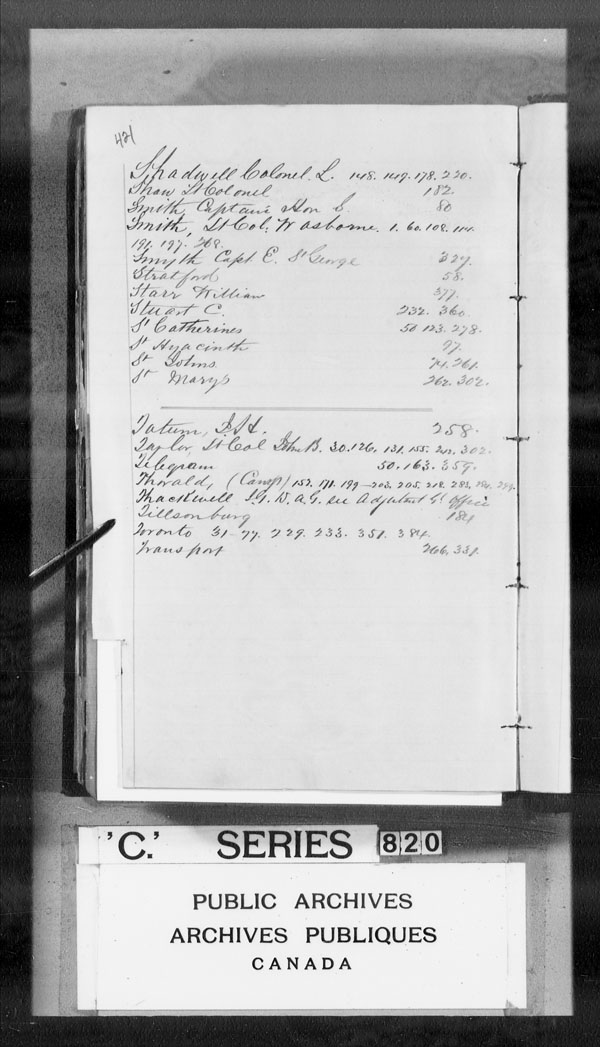 421
Shadwell Colonel L. 148. 149. 178. 220.
Shaw Lt Colonel 182
Smith, Captain Hon S. 80
Smith, Lt Col. W Osborne. 1. 60. 108. 114.
191. 197. 268.
Smyth Capt. E. St George 327.
Stratford 58.
Starr William 377.
Stuart C. 232. 360.
St Catherines 50 123. 278.
St Hyacinth 77.
St Johns 74. 261.
St Marys 262. 302.
Tatum, 258.
Taylor, Lt Col John B. 30. 126. 131. 155. 212. 302.
Telegram 50. 163. 359.
Thorald, (Camp) 152. 171. 199-203. 205. 218. 283.
Thackwell D. A. G. see Adjutant Gl. Office
Tillsonburg 184
Toronto 31-77. 229. 233. 351. 384.
Transport 266. 331.
'C.' SERIES 820
PUBLIC ARCHIVES
ARCHIVES PUBLIQUES
CANADA